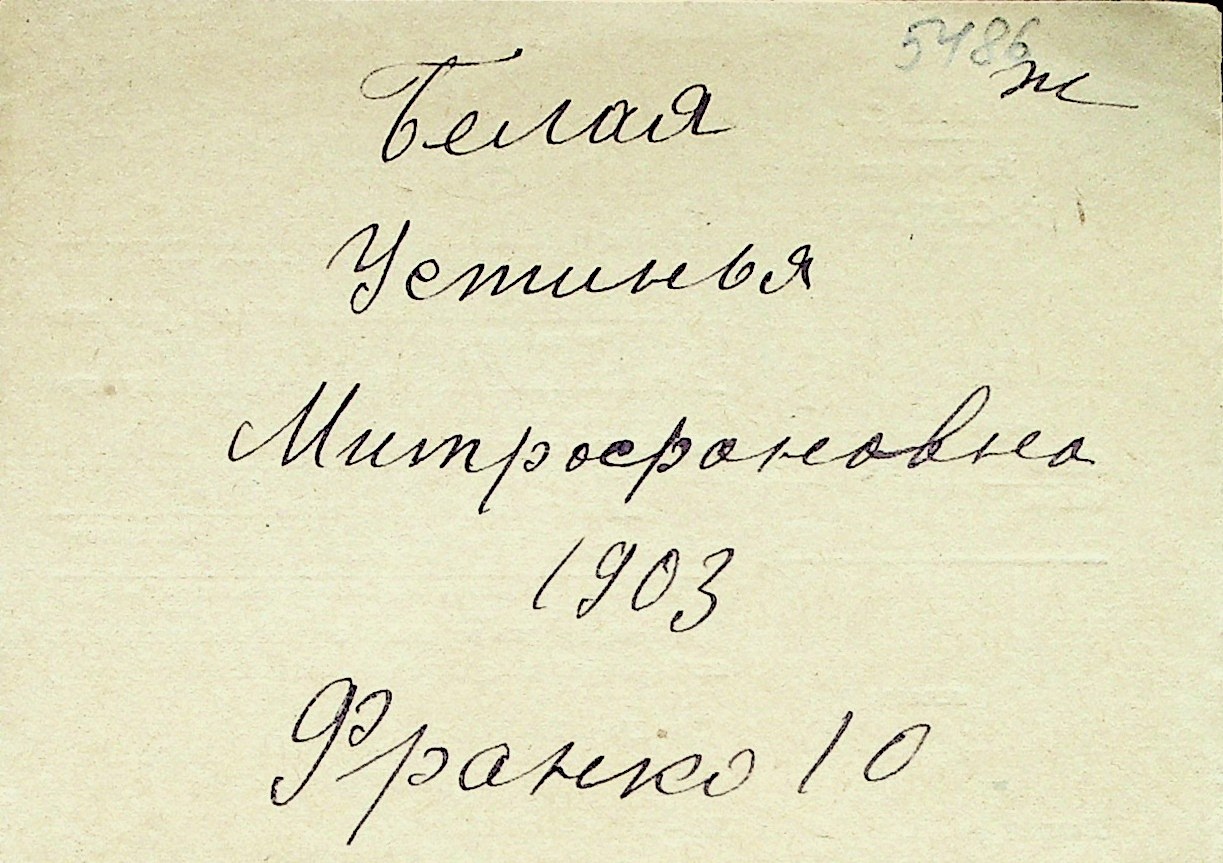 5486
ж
Белая
Устинья
Митрофановна
1903
Франко 10